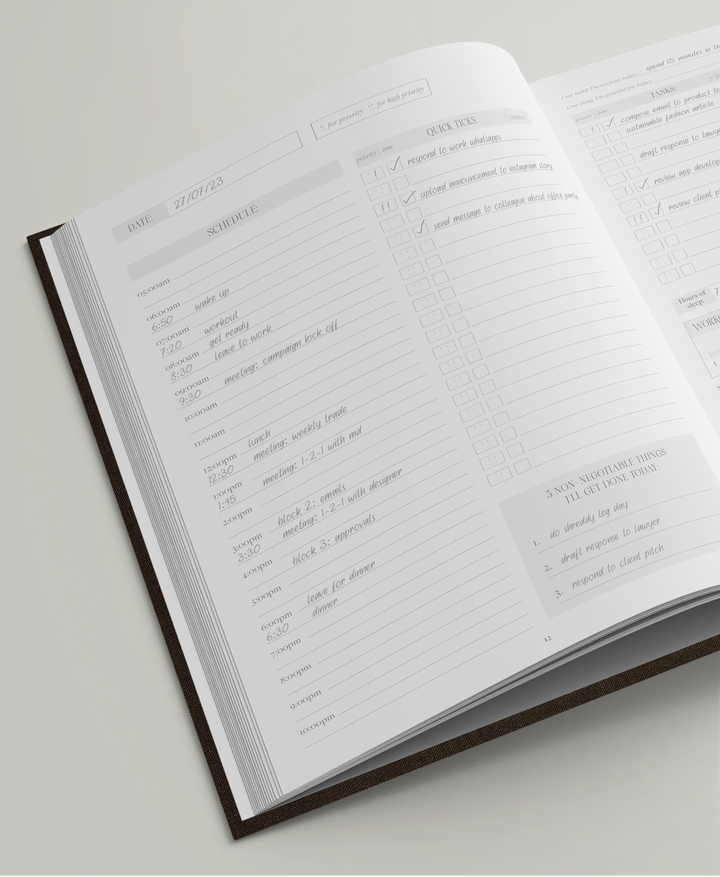 ! for priority !! for high priority
DATE: 27/07/23
SCHEDULE:
05:00am
06:00am
6:50 wake up
07:00am workout
7:20 get ready
08:00am leave to work
8:30
09:00am meeting: campaign kick off
9:30
10:00am
11:00am
12:00pm lunch
12:30 meeting: weekly trade
1:00pm meeting: 1-2-1 with md
1:45
2:00pm
3:00pm block 2: emails
3:30 meeting: 1-2-1 with designer
4:00pm block 3: approvals
5:00pm
6:00pm leave for dinner
6:30 dinner
7:00pm
8:00pm
9:00pm
10:00pm
QUICK TICKS:
priority | done
! respond to work whatsapps
!! upload announcement to instagram story
send message to colleague about office party
3 NON-NEGOTIABLE THINGS
I'LL GET DONE TODAY:
1. do shreddy leg day
2. draft response to lawyer
3. respond to client pitch
12
One habit I'm keeping today: spend 15 minutes in th
One thing I'm grateful for today:
TASKS:
priority | done
! compose email to product te
sustainable fashion article
draft response to lawye
!! review app develop
!! review client p
Hours of
sleep: 7
WORKO